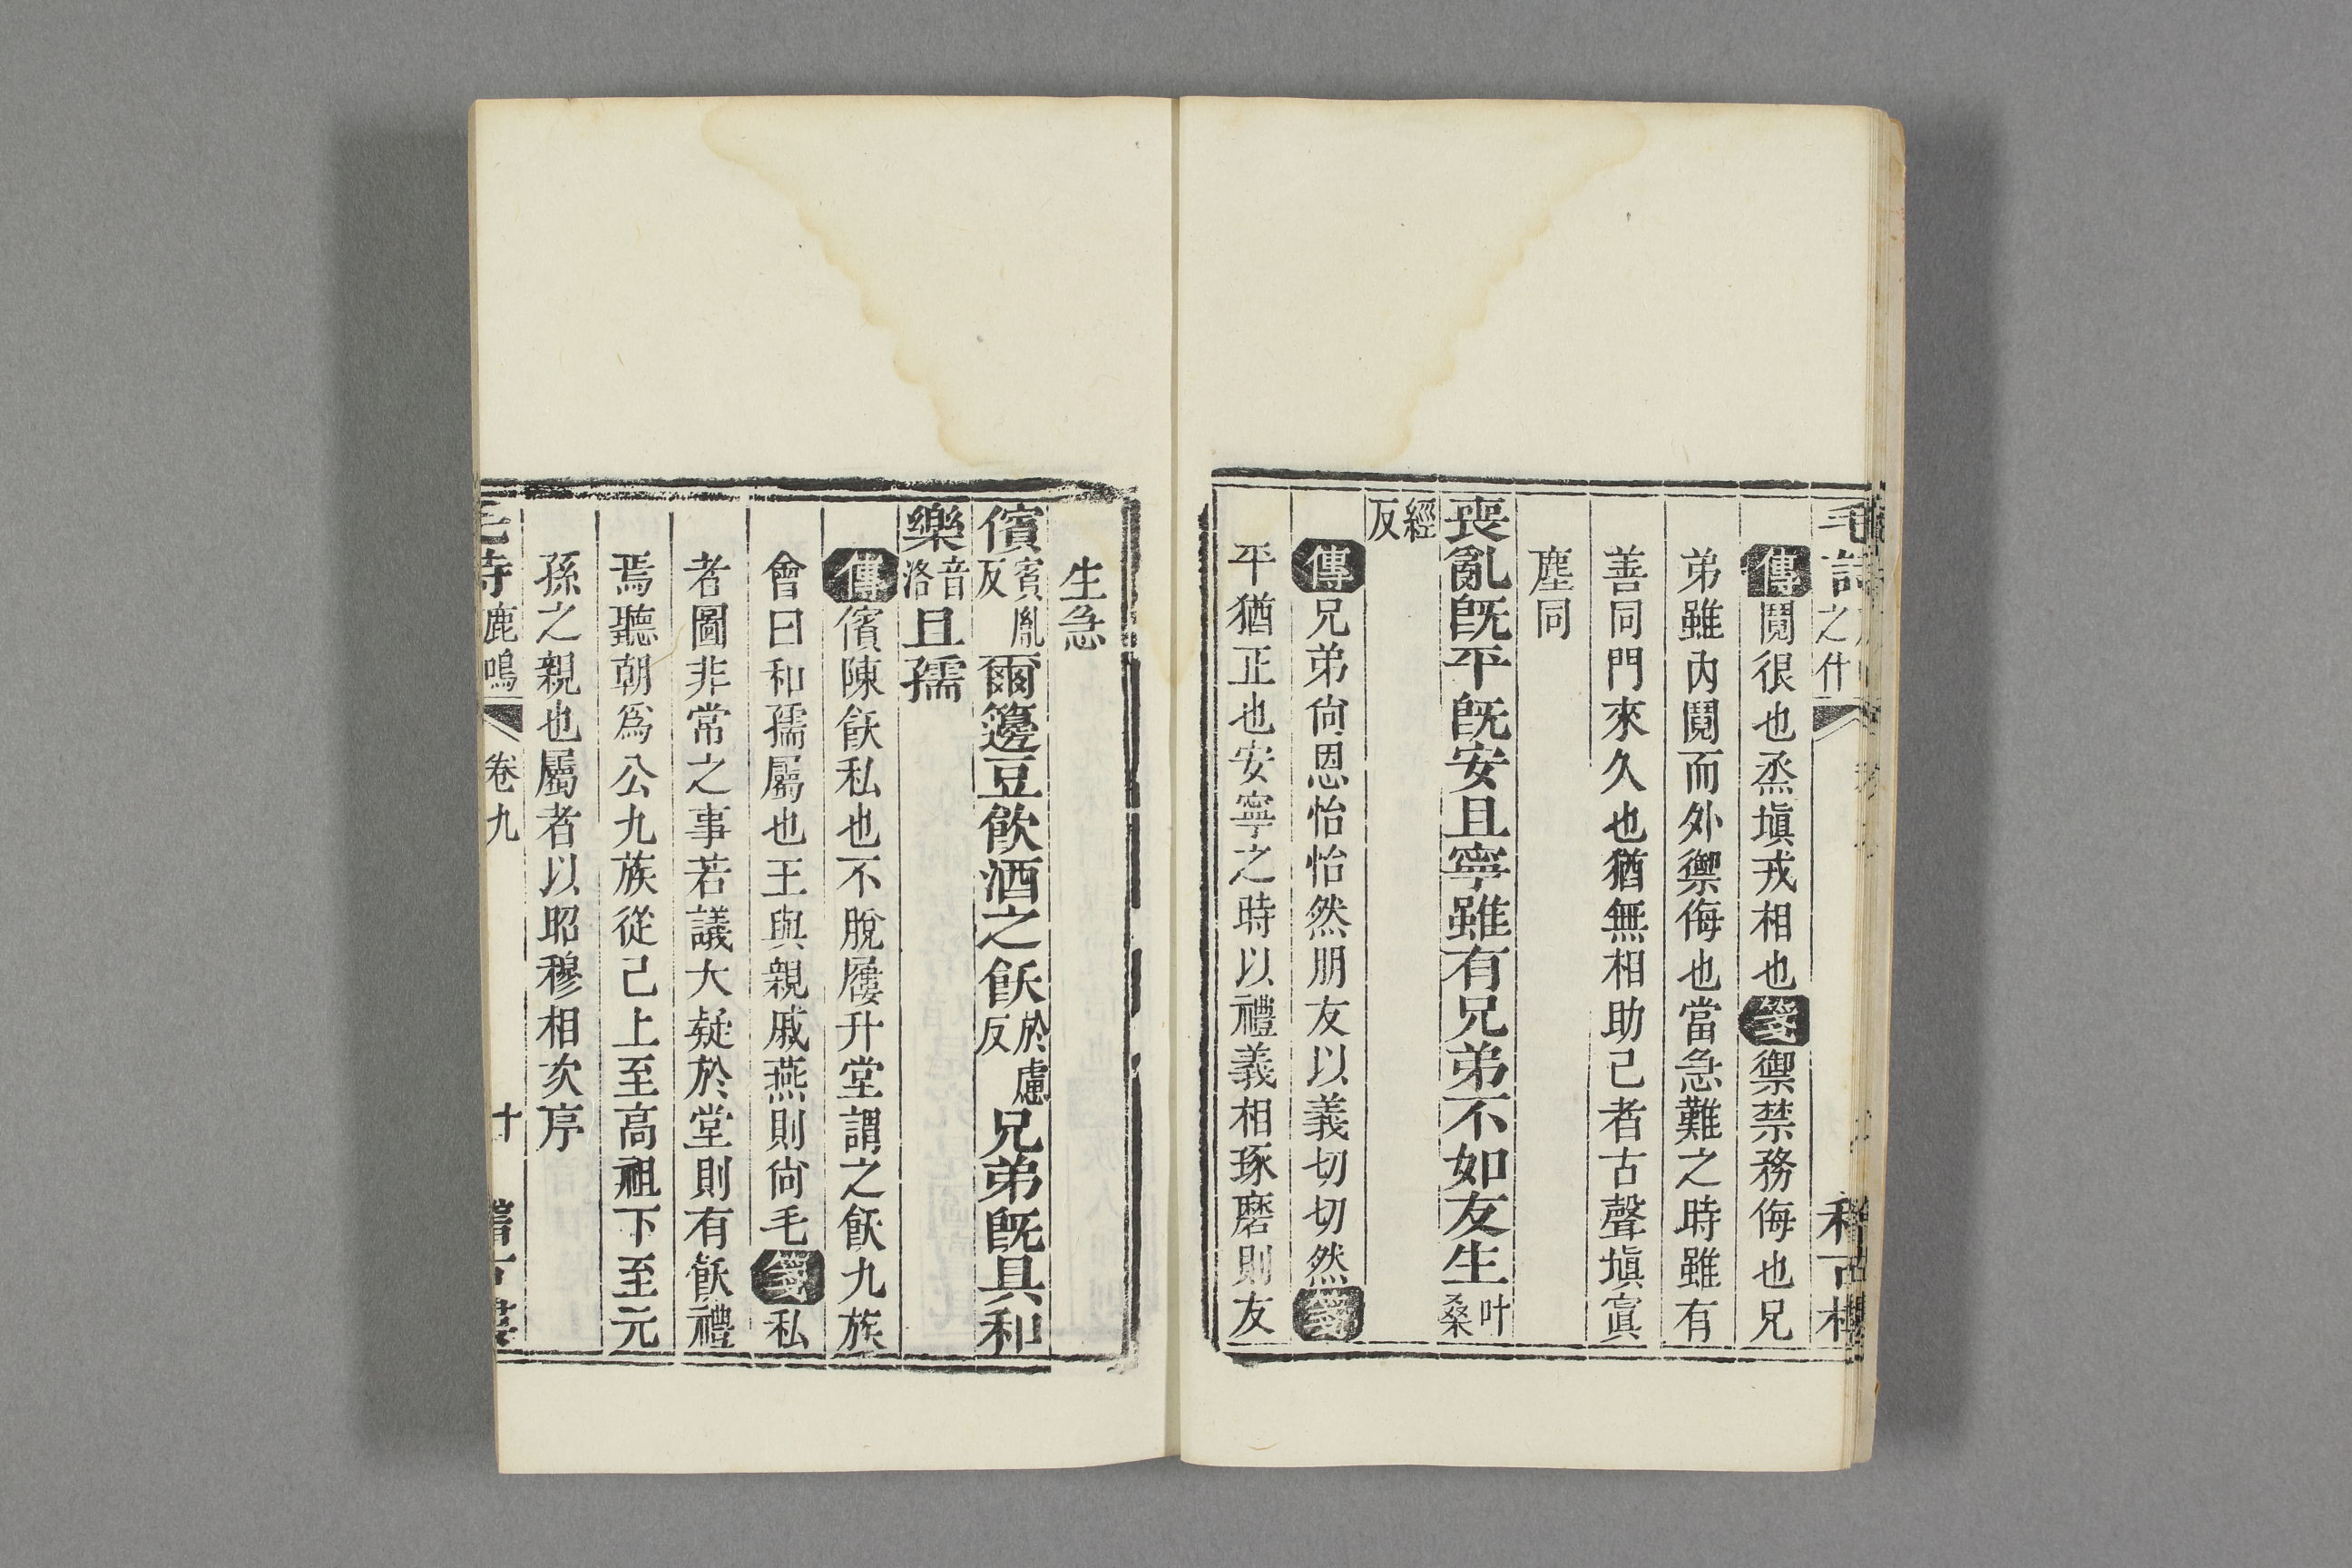 之什
傳鬩很也烝塡戎相也箋禦禁務侮也兄
弟雖內鬩而外禦侮也當急難之時雖有
善同門來久也猶無相助己者古聲塡寘
塵同
喪亂旣平旣安且寧雖有兄弟不如友生叶桑
經反
傳兄弟尙恩怡怡然朋友以義切切然箋
平猶正也安寧之時以禮義相琢磨則友
生急
儐賓胤反爾籩豆飮酒之飫於慮反兄弟旣具和
樂音洛且孺
傳儐陳飫私也不脫屨升堂謂之飫九族
會曰和孺屬也王與親戚燕則尙毛箋私
者圖非常之事若議大疑於堂則有飫禮
焉聽朝爲公九族從己上至高祖下至元
孫之親也屬者以昭穆相次序
毛詩鹿鳴 卷九 十